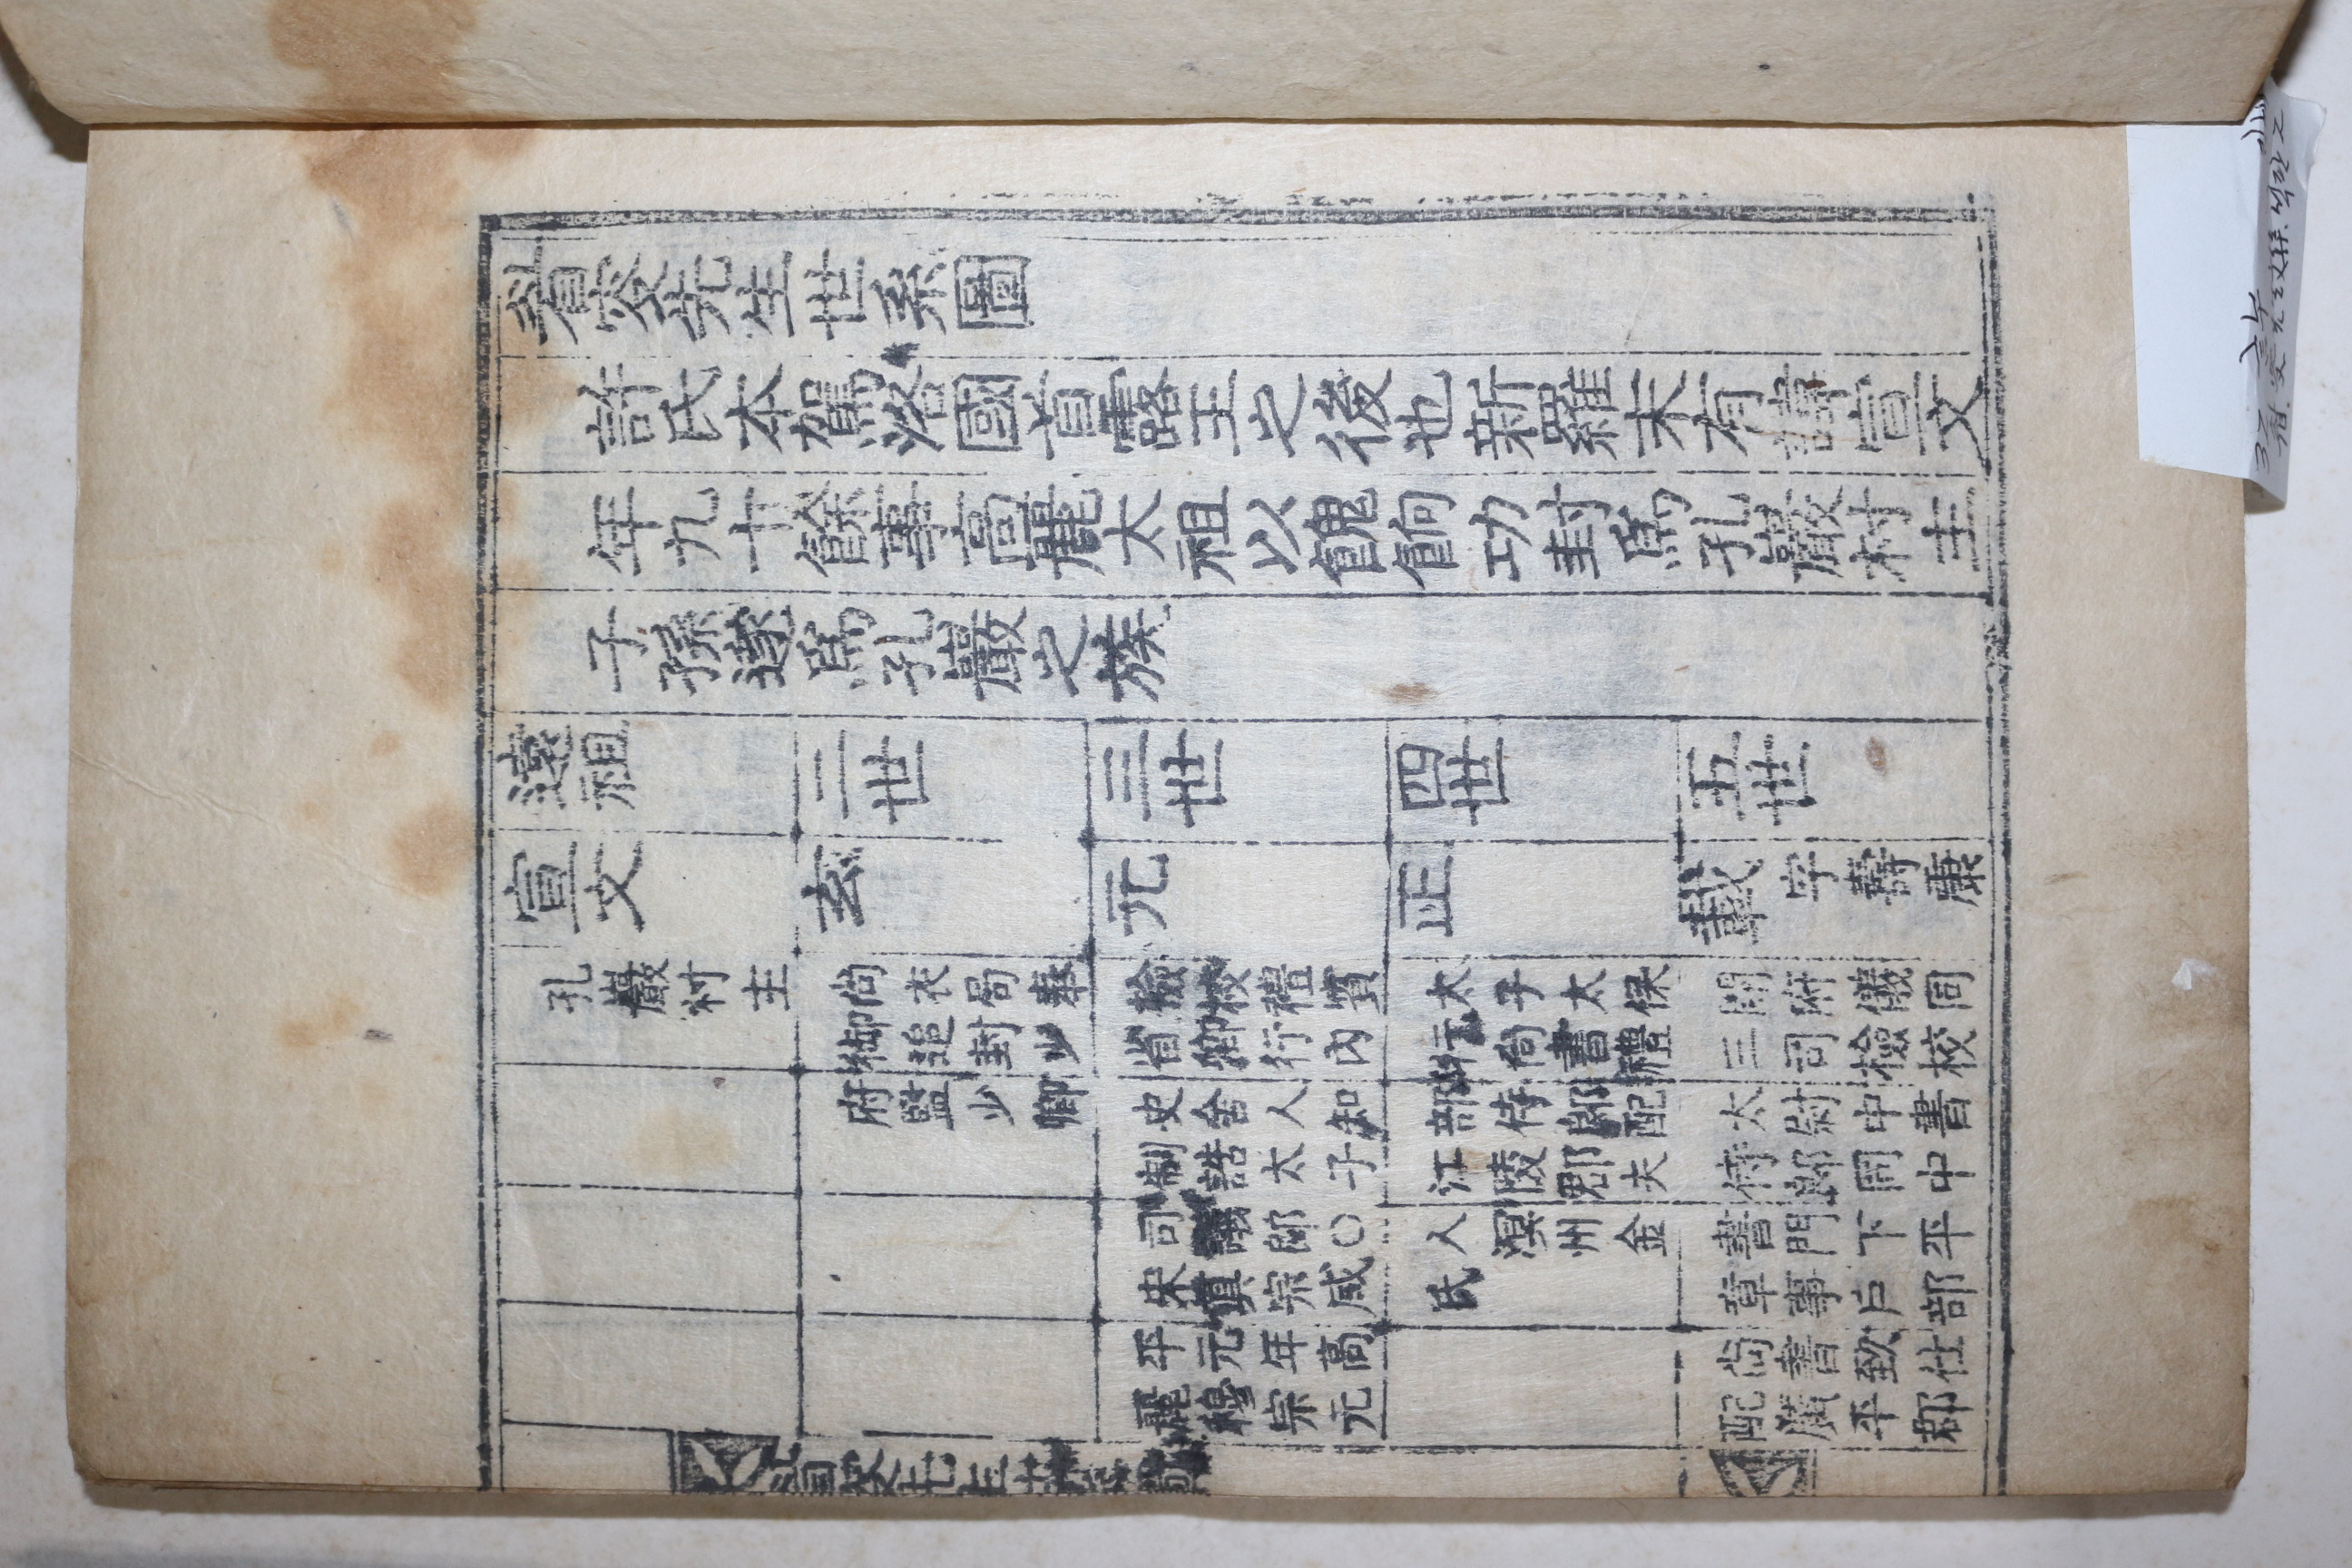 睂叜先生世系圖
許氏本駕洛國首露王之後也新羅末有諱宣文
年九十餘事高麗太祖以餽餉功封爲孔巖村主
子孫遂爲孔巖之族
遠祖
二世
三世
四世
五世
宣文
孔巖村主
玄
尚衣局奉
御追封少
府監少卿
元
檢校禮賓
省卿行內
史舍人知
制誥太子
司議郎○
宋眞宗咸
平元年高
麗穆宗元
正
太子太保
行尚書禮
部侍郎配
江陵郡夫
人溟州金
氏
載 字壽康
開府儀同
三司檢校
太尉中書
侍郎同中
書門下平
章事戶部
尚書致仕
配廣平郡